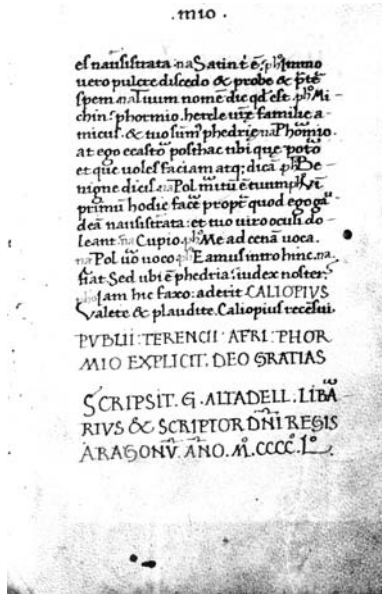 . mio .
es nausistrata .na Satin ē ē. ph Immo
uero pulcre discedo & probe & p̄t̄e
spem .na Tuum nomē dic qd est. ph Mi
chin. phormio. hercle ur̄e familie a-
micus. & tuo sūm̄ phedrie na Phormio.
at ego ecastor̄ posthac tibi que pot̄o
et que uoles faciam atq; dicā ph Be
nigne dicis na Pol mitū ē tuum ph Ui
primū hodie facē propt̄ quod ego gā
deā nausistrata: et tuo uiro oculi do-
leant .na Cupio. ph Me ad cenā uoca.
na Pol uō uoco ph Eamus intro hinc. na.
fiat Sed ubi ē phedria: iudex noster:
pho Iam hic faxo: aderit CALIOPIVS
Valete & plaudite. Caliopius recēsui.
PVBLII : TERENCII AFRI : PHOR
MIO EXPLICIT. DEO GRATIAS
SCRIPSIT. G. ALTADELL. LIBĀ
RIVS & SCRIPTOR DN̄I REGIS
ARAGONV̄. AN̄O. M̊. CCCC̊. L̊.